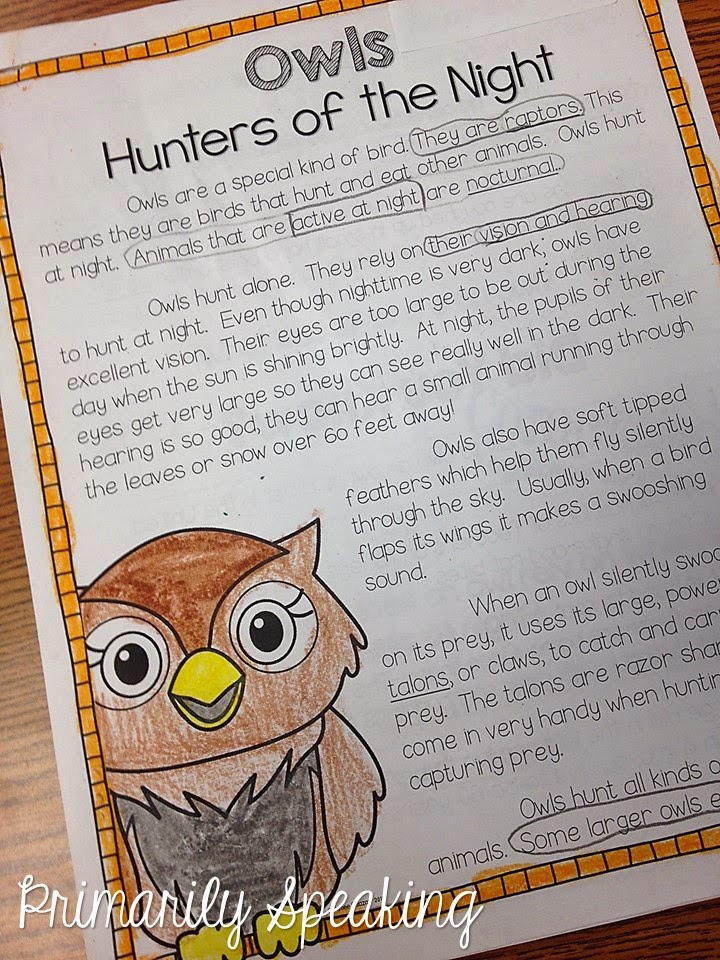 Owls
Hunters of the Night
Owls are a special kind of bird. They are raptors. This
means they are birds that hunt and eat other animals. Owls hunt
at night. Animals that are active at night are nocturnal.
Owls hunt alone. They rely on their vision and hearing
to hunt at night. Even though nighttime is very dark, owls have
excellent vision. Their eyes are too large to be out during the
day when the sun is shining brightly. At night, the pupils of their
eyes get very large so they can see really well in the dark. Their
hearing is so good, they can hear a small animal running through
the leaves or snow over 60 feet away!
Owls also have soft tipped
feathers which help them fly silently
through the sky. Usually, when a bird
flaps its wings it makes a swooshing
sound.
When an owl silently swoo
on its prey, it uses its large, powe
talons, or claws, to catch and car
prey. The talons are razor shar
come in very handy when huntin
capturing prey.
Owls hunt all kinds o
animals. Some larger owls e
Primarily Speaking